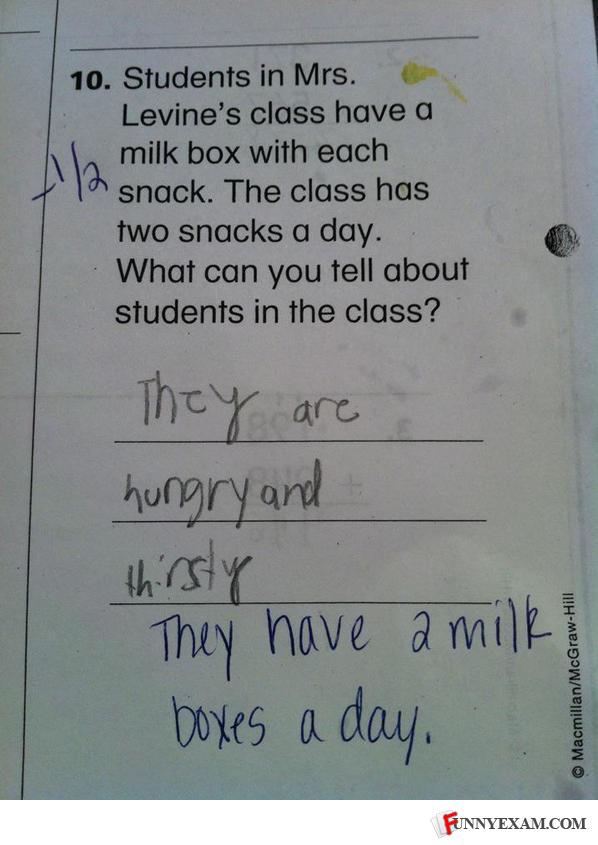 10. Students in Mrs.
Levine's class have a
milk box with each
snack. The class has
two snacks a day.
What can you tell about
students in the class?
-1/2
They are
hungry and
thirsty
They have 2 milk
boxes a day.
© Macmillan/McGraw-Hill
FUNNYEXAM.COM